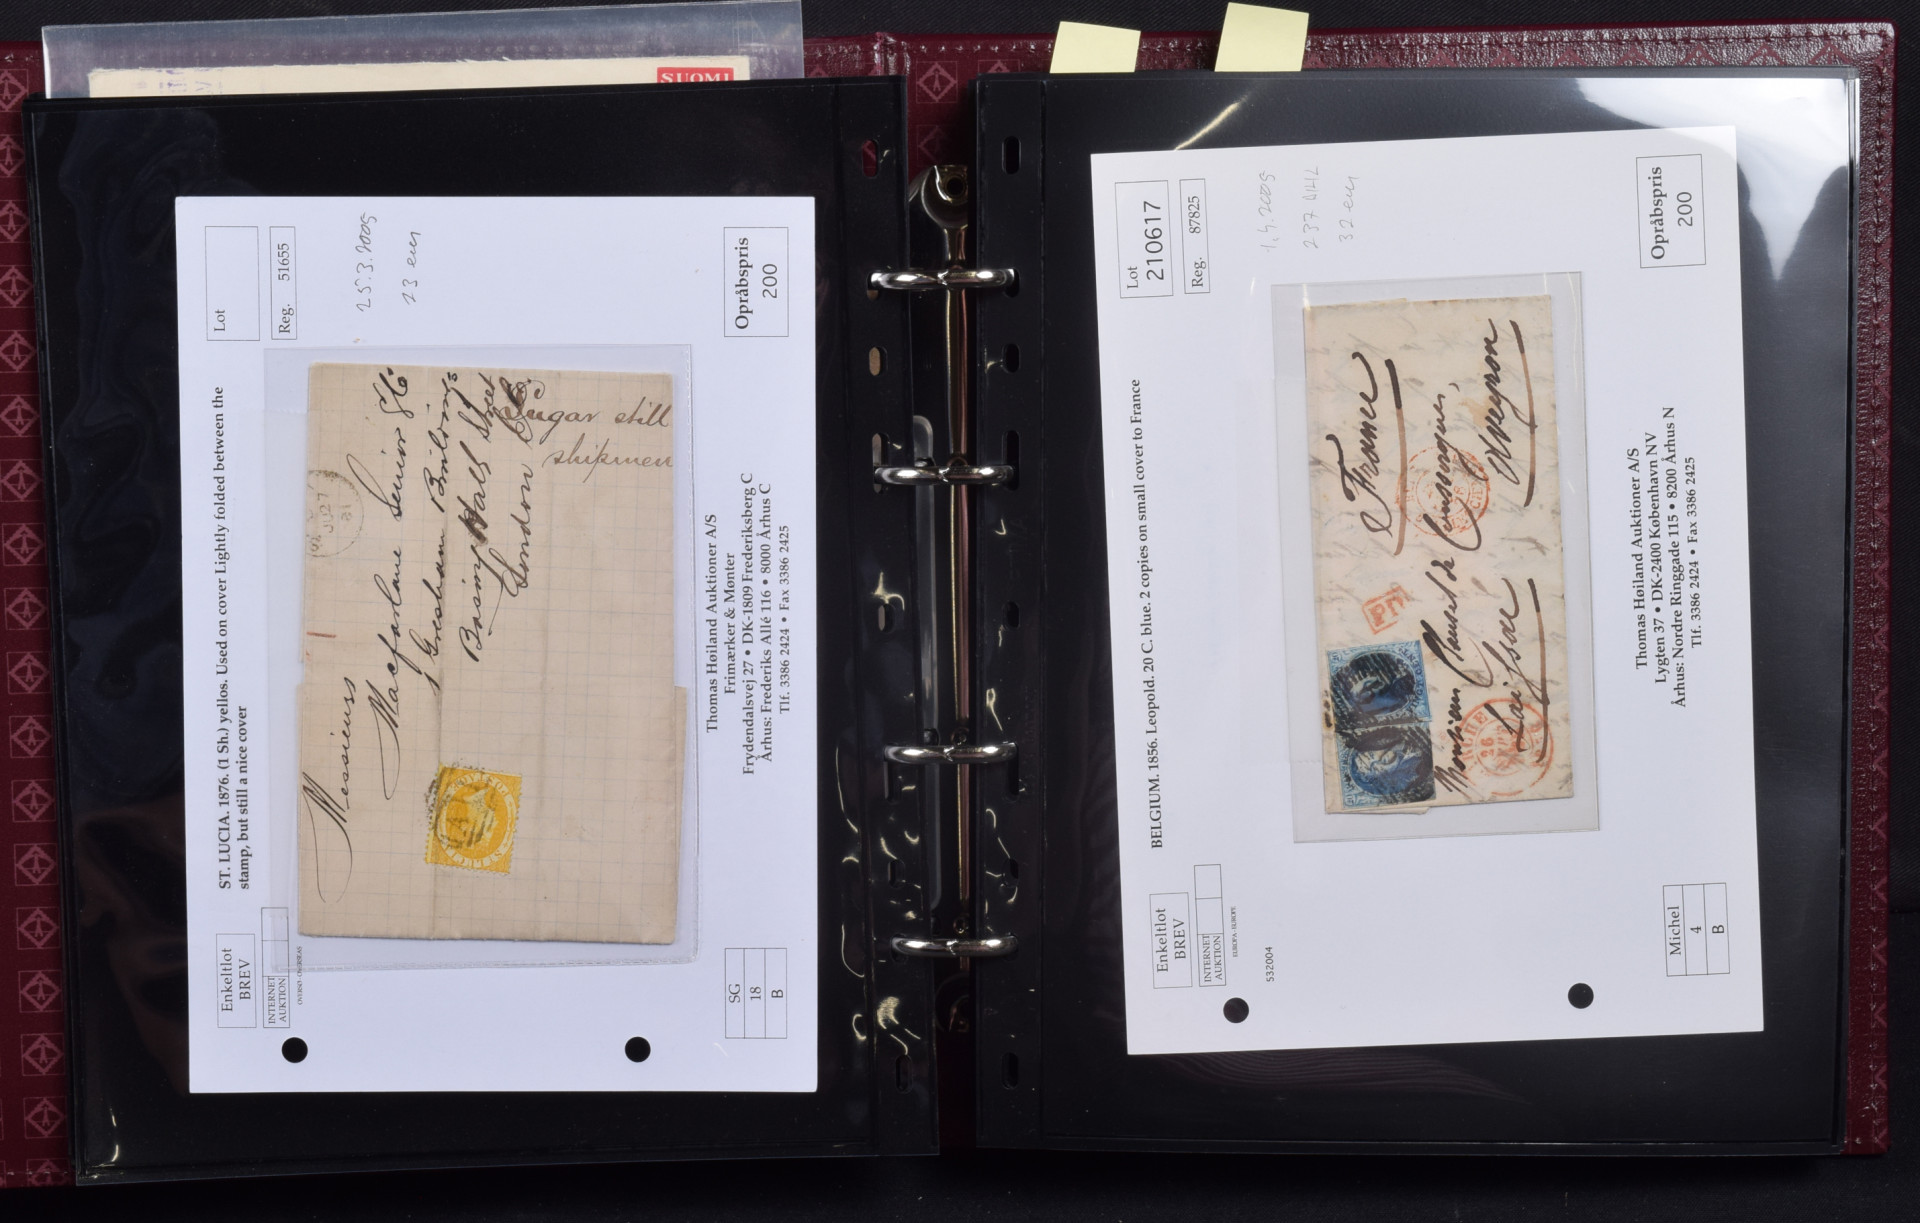 SUOMI
Lot
Reg. 51655
25.3.2005
23 eur
Opråbspris
200
ST. LUCIA. 1876. (1 Sh.) yellos. Used on cover Lightly folded between the
stamp, but still a nice cover
Enkeltlot
BREV
INTERNET
AUKTION
OVERSO - OVERSEAS
Messieurs
Macfarlane Senior & Co.
Gresham Buildings
Basing Hall Street
London
Sugar still
shipmen
JU 27
81
SG
18
B
Thomas Høiland Auktioner A/S
Frimærker & Mønter
Frydendalsvej 27 • DK-1809 Frederiksberg C
Århus: Frederiks Allé 116 • 8000 Århus C
Tlf. 3386 2424 • Fax 3386 2425
Lot
210617
Reg. 87825
1.4.2005
32 eur
Opråbspris
200
BELGIUM. 1856. Leopold. 20 C. blue. 2 copies on small cover to France
Enkeltlot
BREV
INTERNET
AUKTION
EUROPA - EUROPE
532004
France
Monsieur
Aveyron
PD
26
Michel
4
B
Thomas Høiland Auktioner A/S
Lygten 37 • DK-2400 København NV
Århus: Nordre Ringgade 115 • 8200 Århus N
Tlf. 3386 2424 • Fax 3386 2425